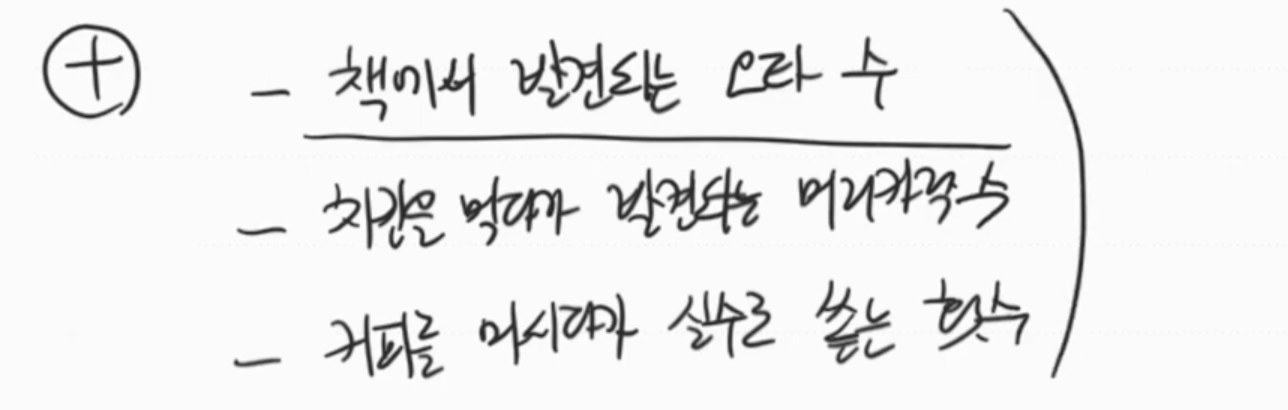 ⊕ - 책에서 발견되는 오타 수
- 치킨을 먹다가 발견되는 머리카락 수
- 커피를 마시다가 실수로 쏟는 횟수